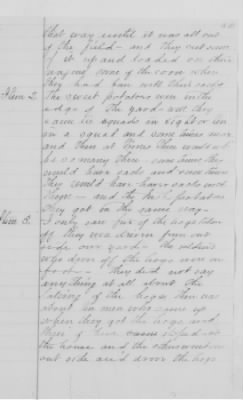 that way until it was all out
of the field - and they cut some
of it up and loaded on their
wagons some of the corn when
they had ran with their wagons
Item 2. The sweet potatoes were in the
edge of the yard well they
came in squads in eight or ten
in a squad and some times more
and then at times there would not
be so many there - some times they
would have sacks and some times
they would have
and they the potatoes
they got in the same way -
Item 3. I only saw five of the hogs taken
off they were driven from out
side our yard - the soldiers
who drove off the hogs were on
foot - they did not say
anything at all about the
taking of the hogs there was
about ten men who came up
when they got the hogs and
them of them came up
the house and the others went on
out side and drove the hogs